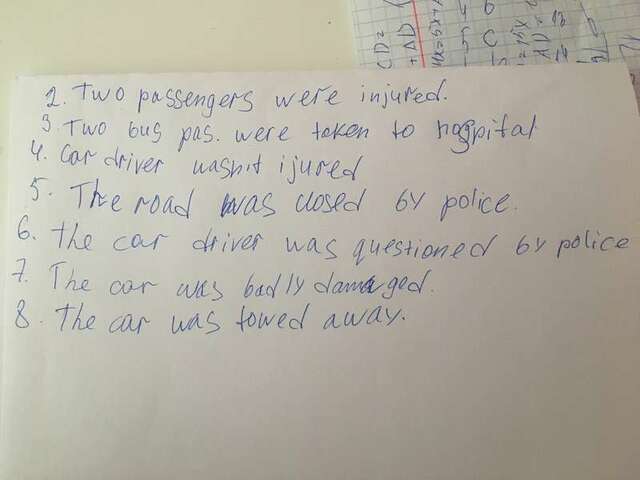 CD=
+AD
2. Two passengers were injured.
3. Two bus pas. were taken to hospital
4. Car driver wasn't ijured
5. The road was closed by police.
6. The car driver was questioned by police
7. The car was badly damaged.
8. The car was towed away.